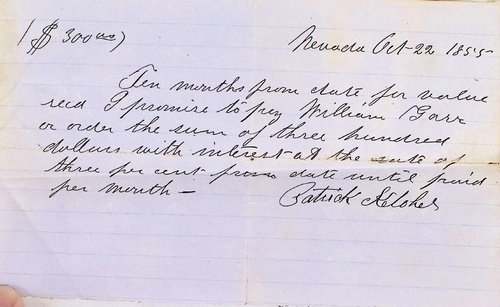 ($300 00)
Nevada Oct 22 1855
Ten months from date for value
recd I promise to pay William Garr
or order the sum of three hundred
dollars with interest at the rate of
three per cent from date until paid
per month —
Patrick Kelsher